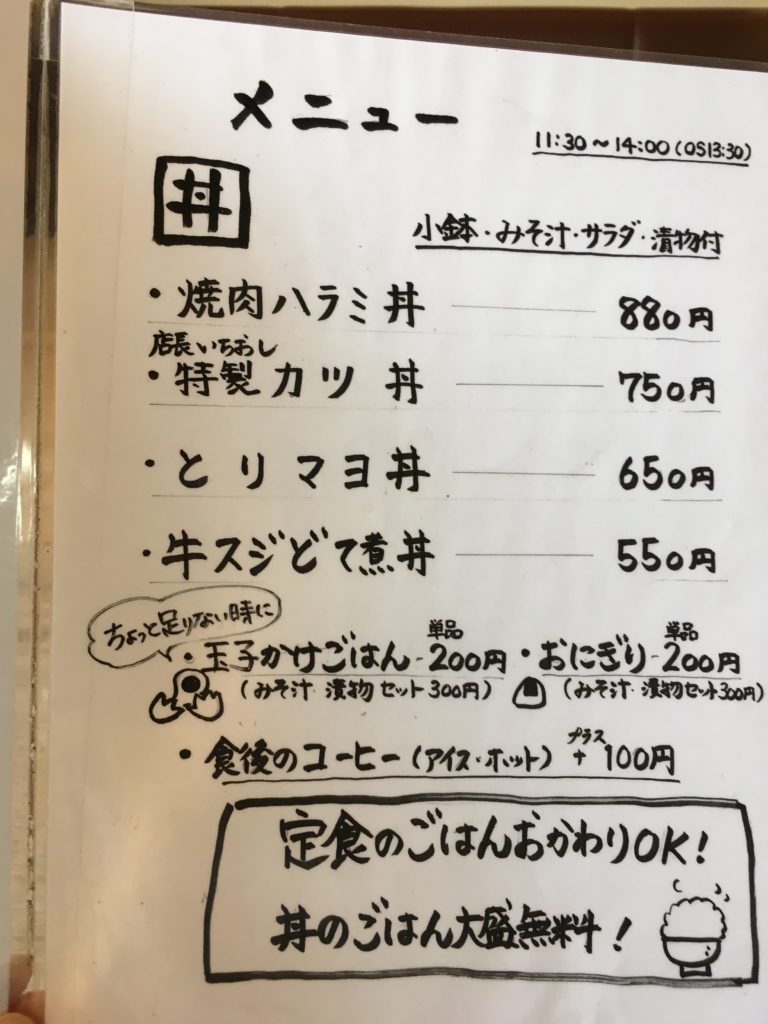 メニュー
11:30～14:00(OS13:30)
丼
小鉢・みそ汁・サラダ・漬物付
・焼肉ハラミ丼 880円
店長いちおし
・特製カツ丼 750円
・とりマヨ丼 650円
・牛スジどて煮丼 550円
ちょっと足りない時に
・玉子かけごはん - 単品 200円 ・おにぎり - 単品 200円
(みそ汁 漬物セット 300円) (みそ汁 漬物セット 300円)
・食後のコーヒー(アイス・ホット) プラス + 100円
定食のごはんおかわりOK!
丼のごはん大盛無料!